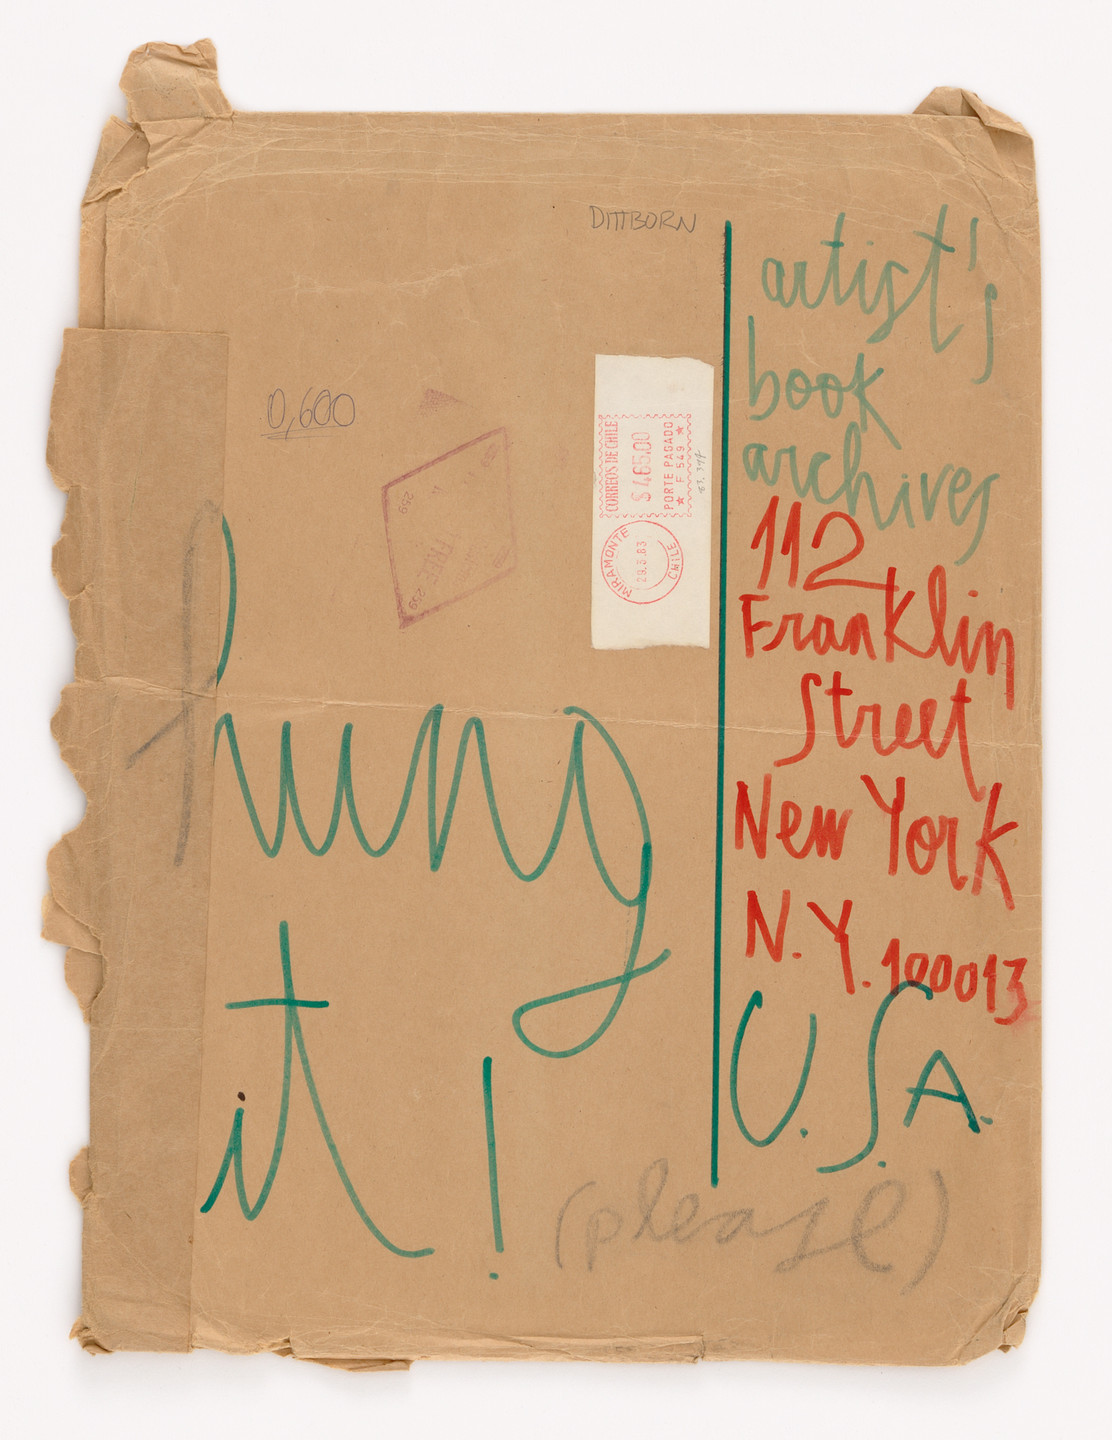 DITTBORN
artist's
book
archives
112
Franklin
Street
New York
N.Y. 100013
U.S.A.
0,600
CORREOS DE CHILE
$ 465.00
PORTE PAGADO
★ F 549 ★
MIRAMONTE
29.3.83
CHILE
259
259
hung
it!
(please)